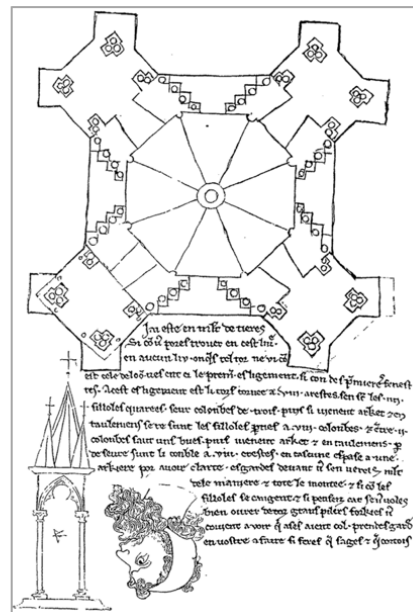 J'ai este en mlt de tieres
Si cō vꝯ pores trover en cest livre
en aucun liu onqes tel tor ne vi cō
est cele de loō ves ent ci le premi esligement. si con des pmieres fenest
res. A cest esligement est li tors tornee a .viii. arestes. sen st les .iiii.
filloles quarees. seur colonbes de trois. puis si vienent arket et en
taulemens se re sunt les filloles pties a .viii. colonbes. et entre .ii.
colonbes saut uns bues. puis vienent arket et entaulemens. p
deseure sunt li conble a .viii. crestes. en cascune espase a une
arkiere por avoir clarte. esgardes devant vꝯ sen veres mlt
de le maniere et tote le montee. et si cō les
filloles se cangent. et si penses car se vꝯ voles
bien ovrer de totꝯ grans pilers forkies vꝯ
covient avoir qi ases aient col. prendes gard
en vostre afaire si feres qe sages et qe cortois